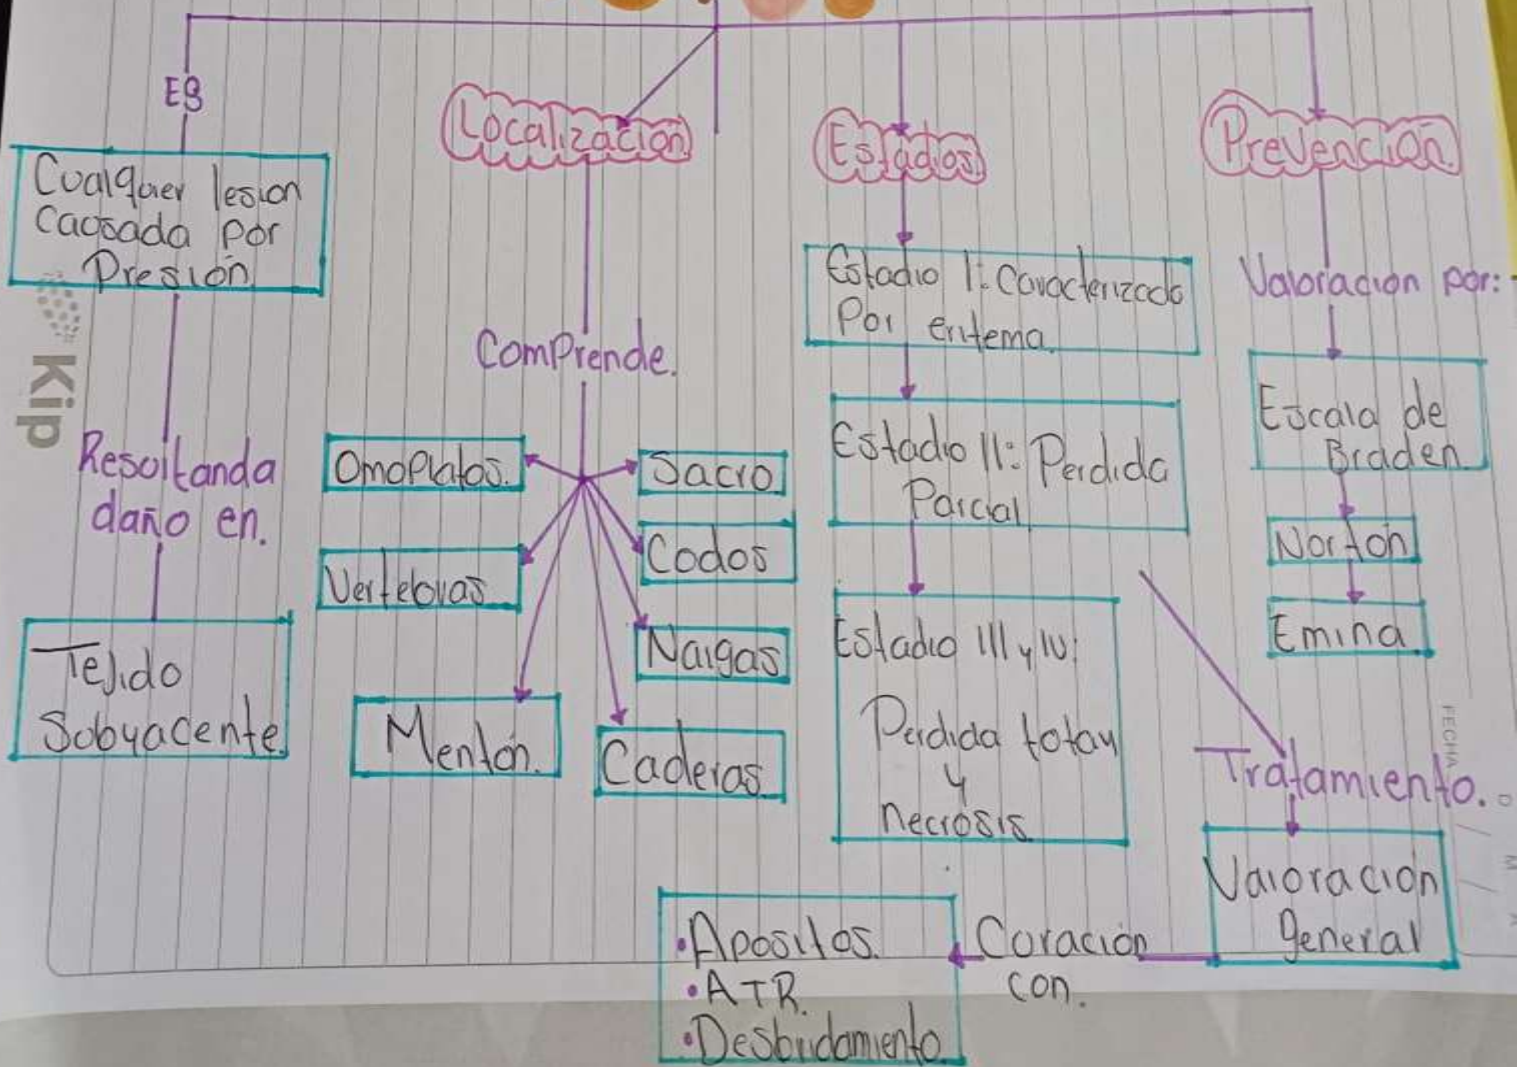 ES
Cualquer lesion
Caosada por
Presión
Resoltanda
daño en.
Tejido
Sobyacente.
Localización
Comprende.
Omoplatos.
Sacro
Vertebras
Codos
Naigas
Menton.
Caderas.
Estados
Estadio I: Caracterizado
Por eritema.
Estadio II: Perdida
Parcial
Estadio III y IV:
Perdida totay
y
necrosis.
Prevención
Valoracion por:
Escala de
Braden
Norton
Emina
Tratamiento.
Valoración
general
Coración
con.
•Apositos.
•ATR.
•Desbridamiento.
Kip
FECHA
D
M
A